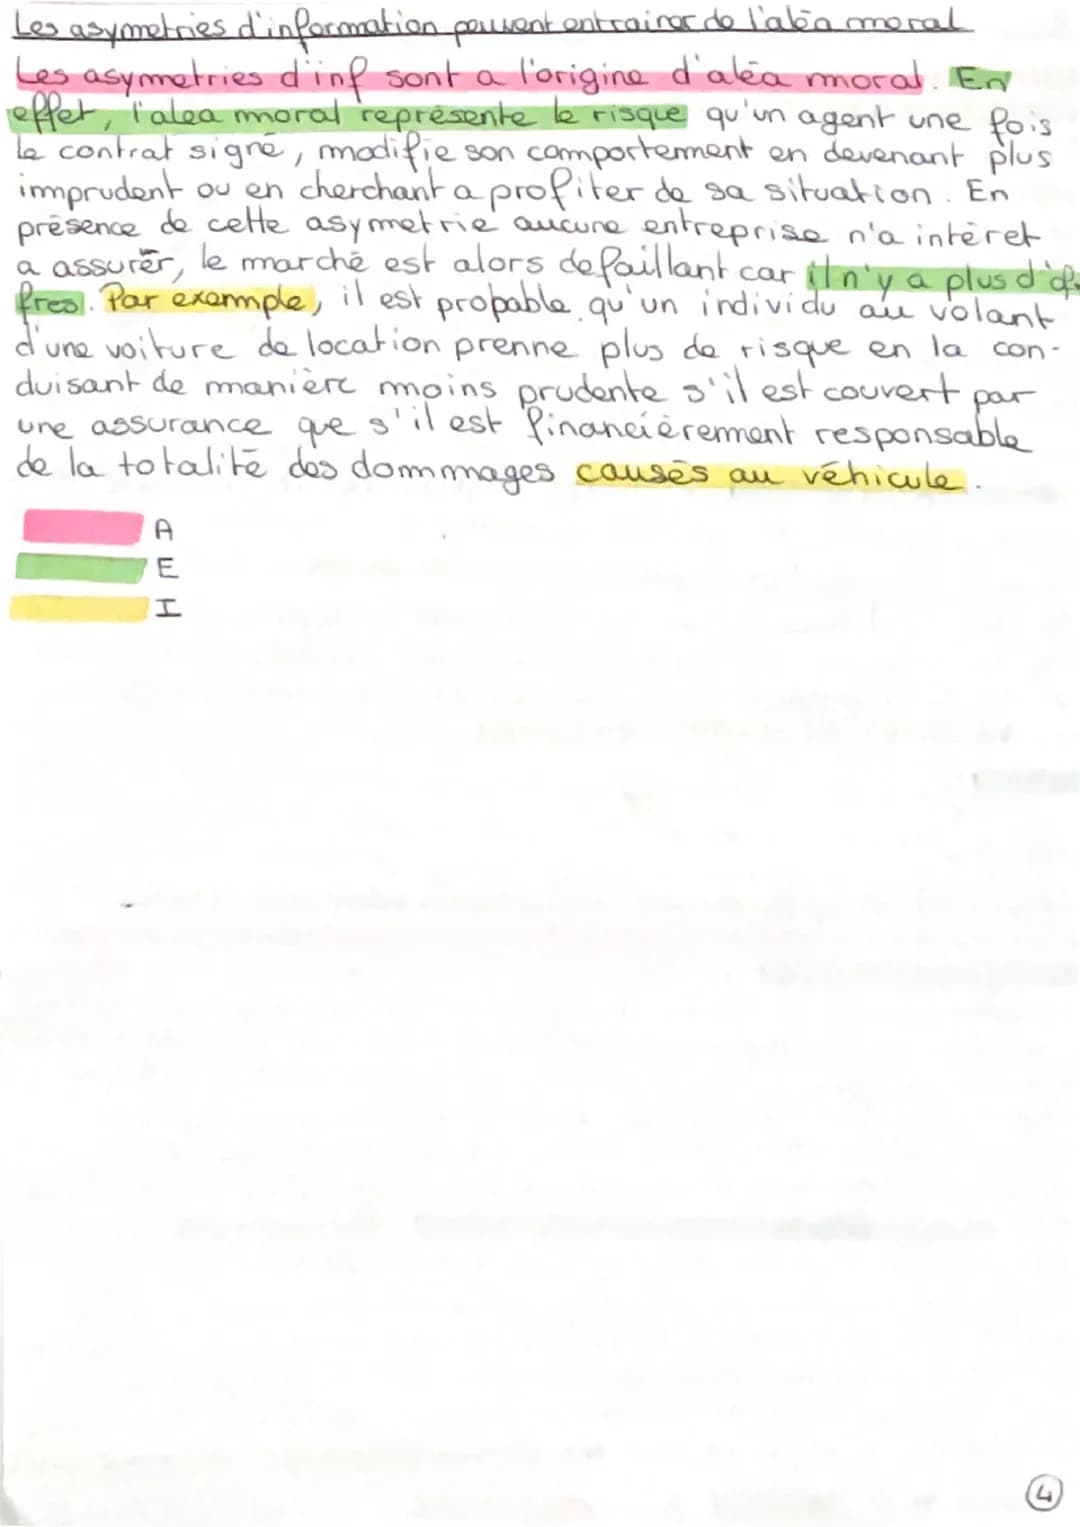 Les asymetries d'information peuvent entrainer de l'aléa moral
Les asymetries d'inf sont a l'origine d'aléa moral. En
effet, l'alea moral représente le risque qu'un agent une fois
le contrat signé, modifie son comportement en devenant plus
imprudent ou en cherchant a profiter de sa situation. En
présence de cette asymetrie aucune entreprise n'a intéret
a assurer, le marché est alors defaillant car il n'y a plus d'of-
fres. Par exemple, il est probable qu'un individu au volant
d'une voiture de location prenne plus de risque en la con-
duisant de manière moins prudente s'il est couvert par
une assurance que s'il est financièrement responsable
de la totalité des dommages causés au véhicule.
A
E
I
4